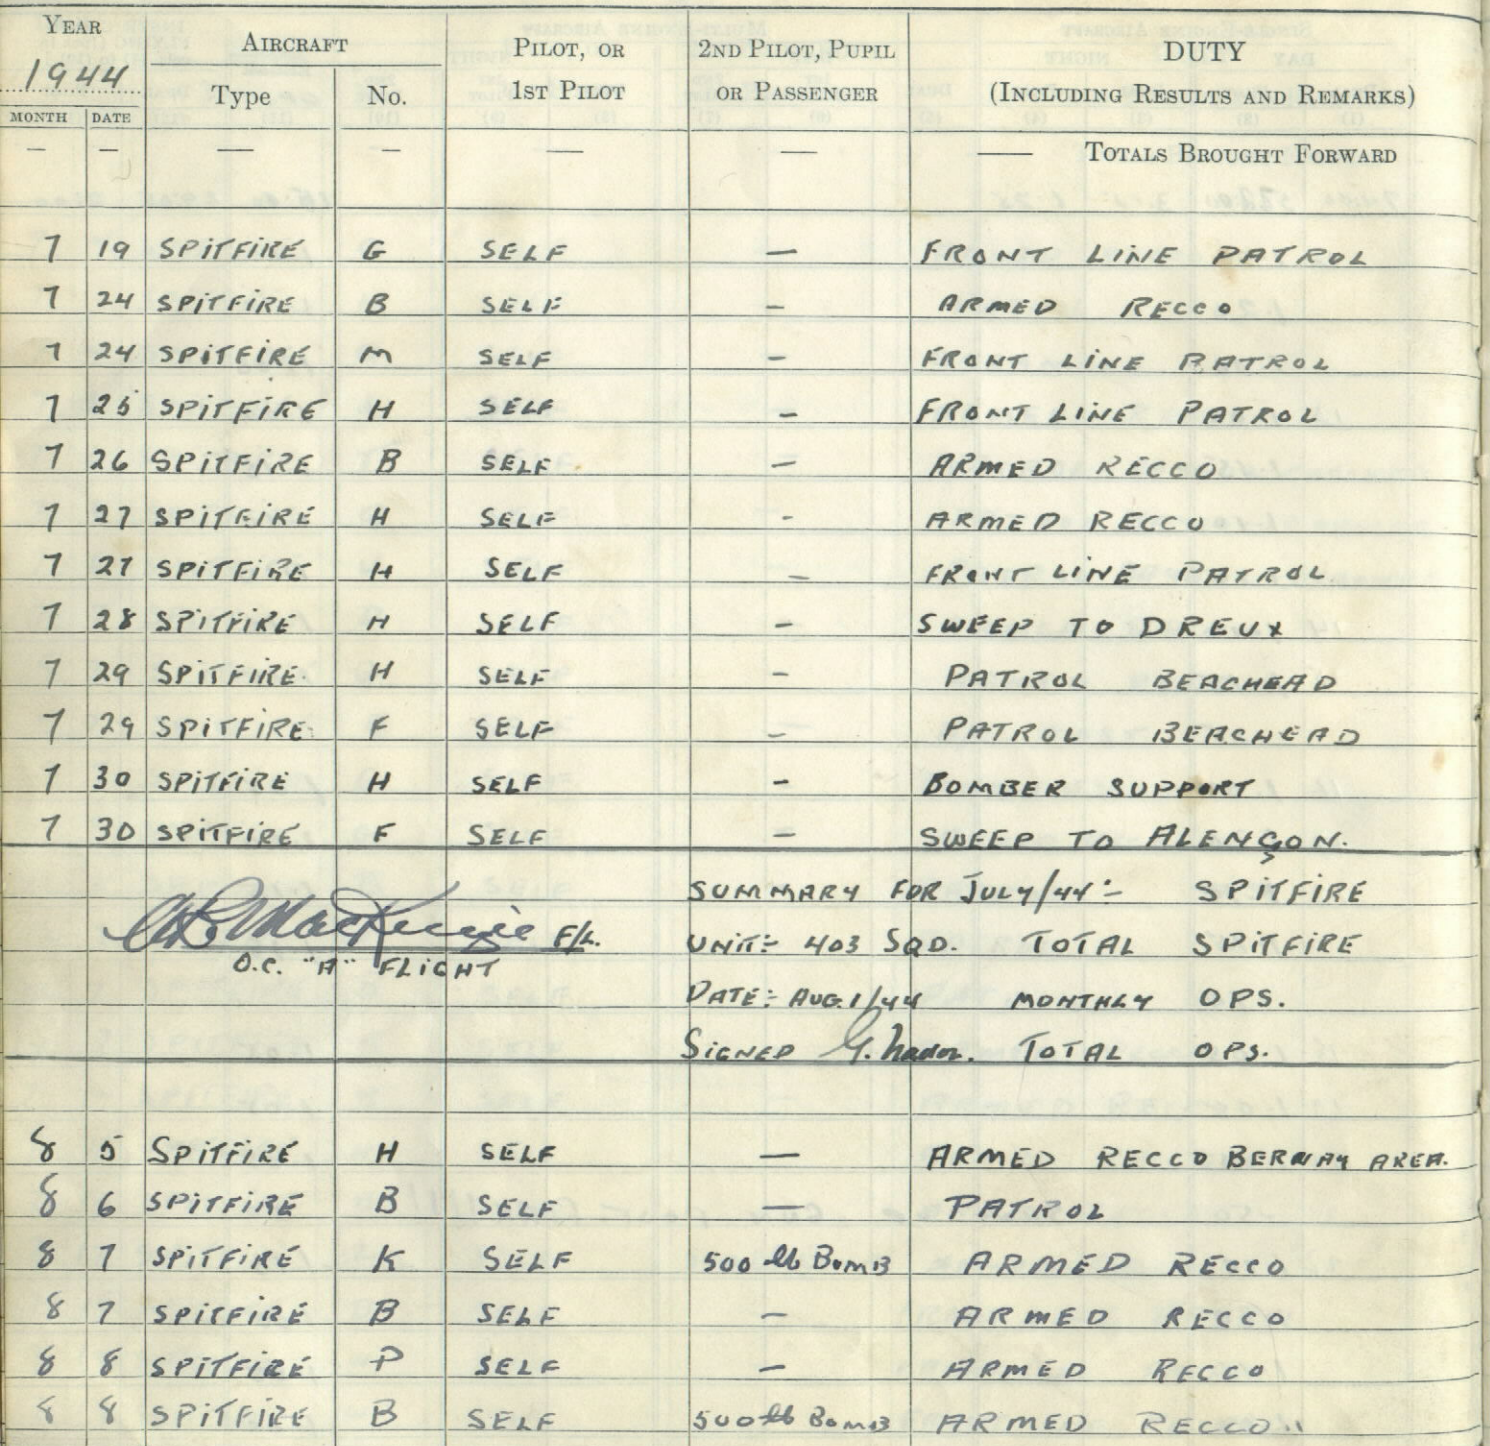 YEAR 1944 AIRCRAFT PILOT, OR 1ST PILOT 2ND PILOT, PUPIL OR PASSENGER DUTY (INCLUDING RESULTS AND REMARKS)
MONTH DATE Type No.
— — — — — — — TOTALS BROUGHT FORWARD
7 19 SPITFIRE G SELF — FRONT LINE PATROL
7 24 SPITFIRE B SELF — ARMED RECCO
7 24 SPITFIRE M SELF — FRONT LINE PATROL
7 25 SPITFIRE H SELF — FRONT LINE PATROL
7 26 SPITFIRE B SELF — ARMED RECCO
7 27 SPITFIRE H SELF - ARMED RECCO
7 27 SPITFIRE H SELF — FRONT LINE PATROL
7 28 SPITFIRE H SELF — SWEEP TO DREUX
7 29 SPITFIRE H SELF — PATROL BEACHEAD
7 29 SPITFIRE F SELF — PATROL BEACHEAD
7 30 SPITFIRE H SELF — BOMBER SUPPORT
7 30 SPITFIRE F SELF — SWEEP TO ALENÇON.
SUMMARY FOR JULY/44:- SPITFIRE
MacKenzie F/L. UNIT:- 403 SQD. TOTAL SPITFIRE
O.C. "A" FLIGHT
DATE:- AUG.1/44 MONTHLY OPS.
SIGNED TOTAL OPS.
8 5 SPITFIRE H SELF — ARMED RECCO BERNAY AREA.
8 6 SPITFIRE B SELF — PATROL
8 7 SPITFIRE K SELF 500 lb BOMB ARMED RECCO
8 7 SPITFIRE B SELF — ARMED RECCO
8 8 SPITFIRE P SELF — ARMED RECCO
8 8 SPITFIRE B SELF 500 lb BOMB ARMED RECCO